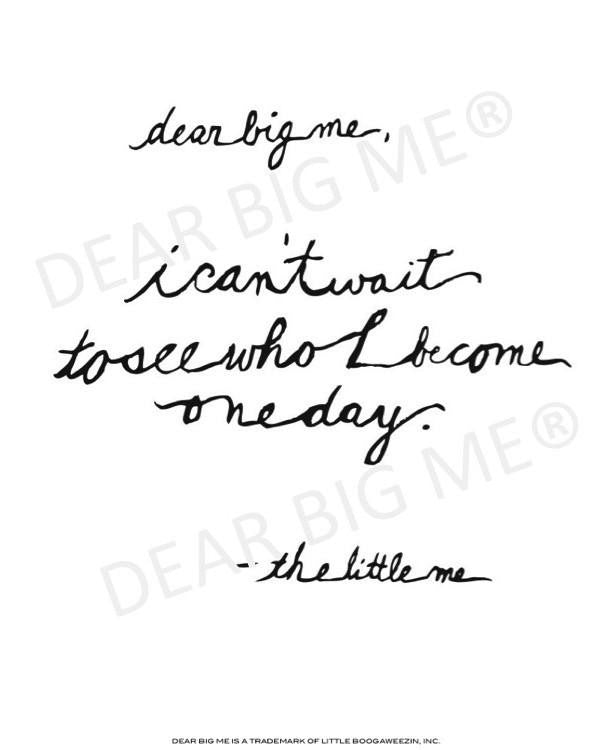 dear big me,
DEAR BIG ME®
i can't wait
to see who I become
one day.
DEAR BIG ME®
- the little me
DEAR BIG ME IS A TRADEMARK OF LITTLE BOOGAWEEZIN, INC.